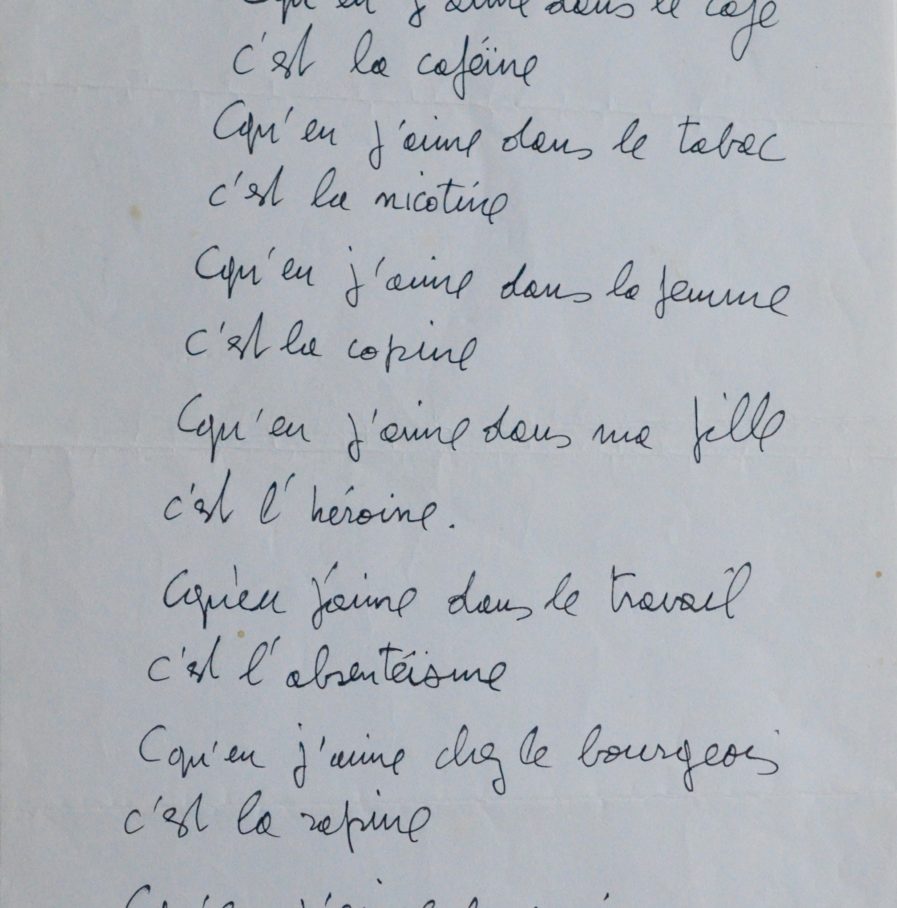 Cqu'en j'aime dans le café
c'est la caféine
Cqu'en j'aime dans le tabac
c'est la nicotine
Cqu'en j'aime dans la femme
c'est la copine
Cqu'en j'aime dans ma fille
c'est l'héroine.
Cqu'en j'aime dans le travail
c'est l'absentéisme
Cqu'en j'aime chez le bourgeois
c'est la rapine